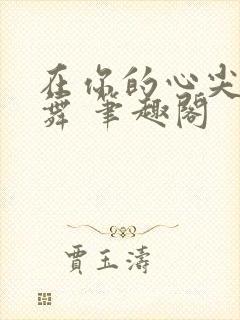 在你的心尖
舞 笔趣阁
贾玉涛